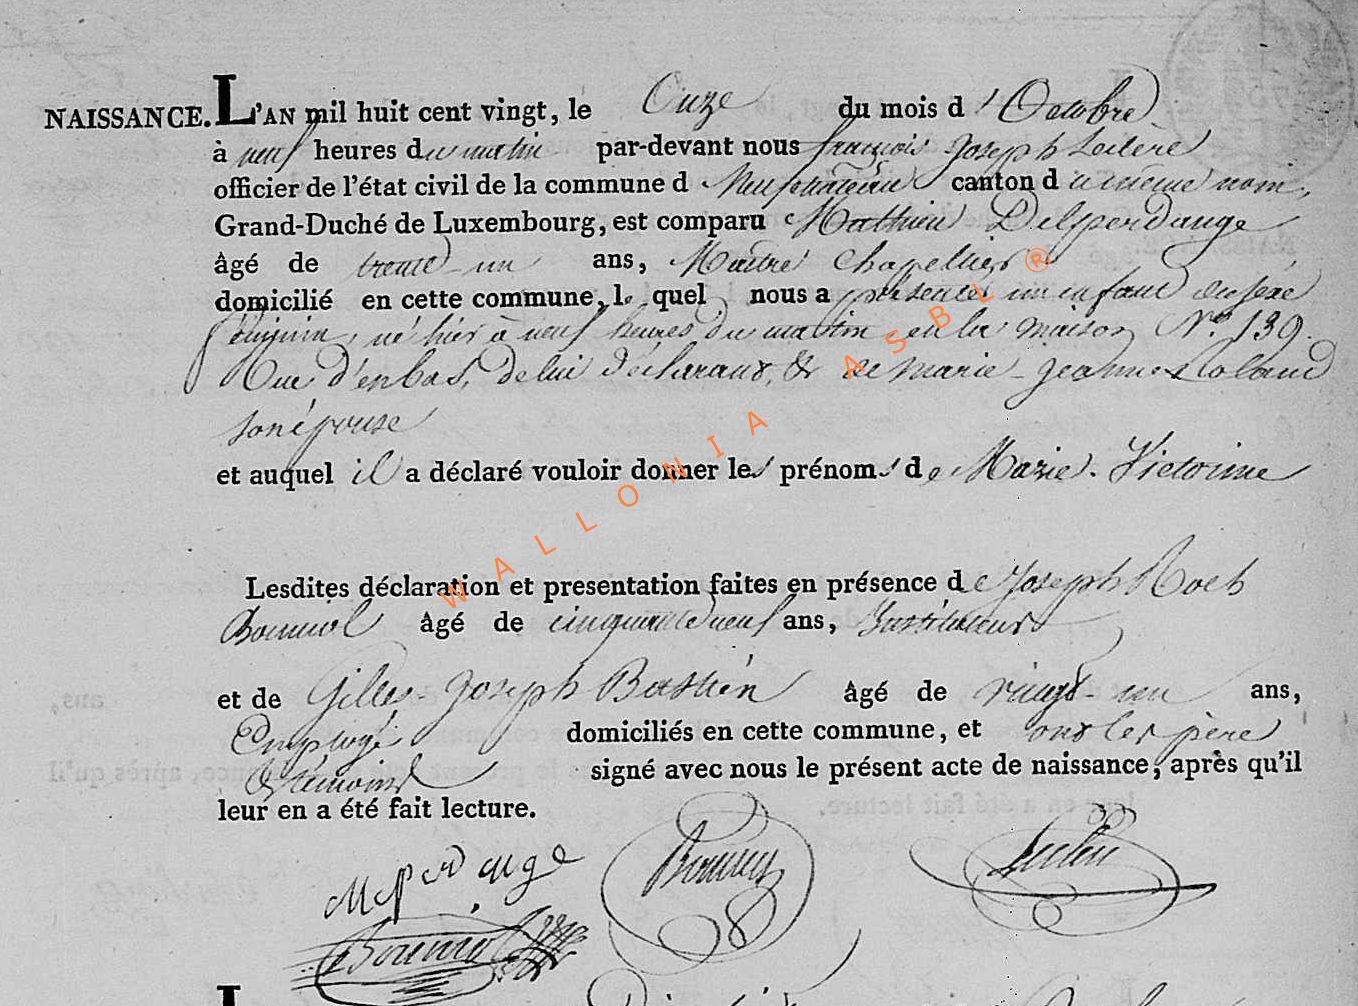 NAISSANCE. L'AN mil huit cent vingt, le Onze du mois d'Octobre
à neuf heures du matin par-devant nous françois Joseph Leclere
officier de l'état civil de la commune d Neufchateau canton du même nom,
Grand-Duché de Luxembourg, est comparu Mathieu Delperdange
âgé de trente-un ans, Maitre Chapellier
domicilié en cette commune, le quel nous a présenté un enfant du sexe
féminin, né hier à neuf heures du matin en la maison N.° 139.
Rue d'enbas, de lui déclarant, & de marie-jeanne
son épouse
et auquel il a déclaré vouloir donner les prénoms de Marie-Victoirine
Lesdites déclaration et presentation faites en présence de Joseph Roch
âgé de cinquante neuf ans, Instituteur
et de Gilles-Joseph Bastien âgé de vingt-un ans,
Employé domiciliés en cette commune, et ont les père
& témoins signé avec nous le présent acte de naissance, après qu'il
leur en a été fait lecture.
WALLONIA ASBL ®